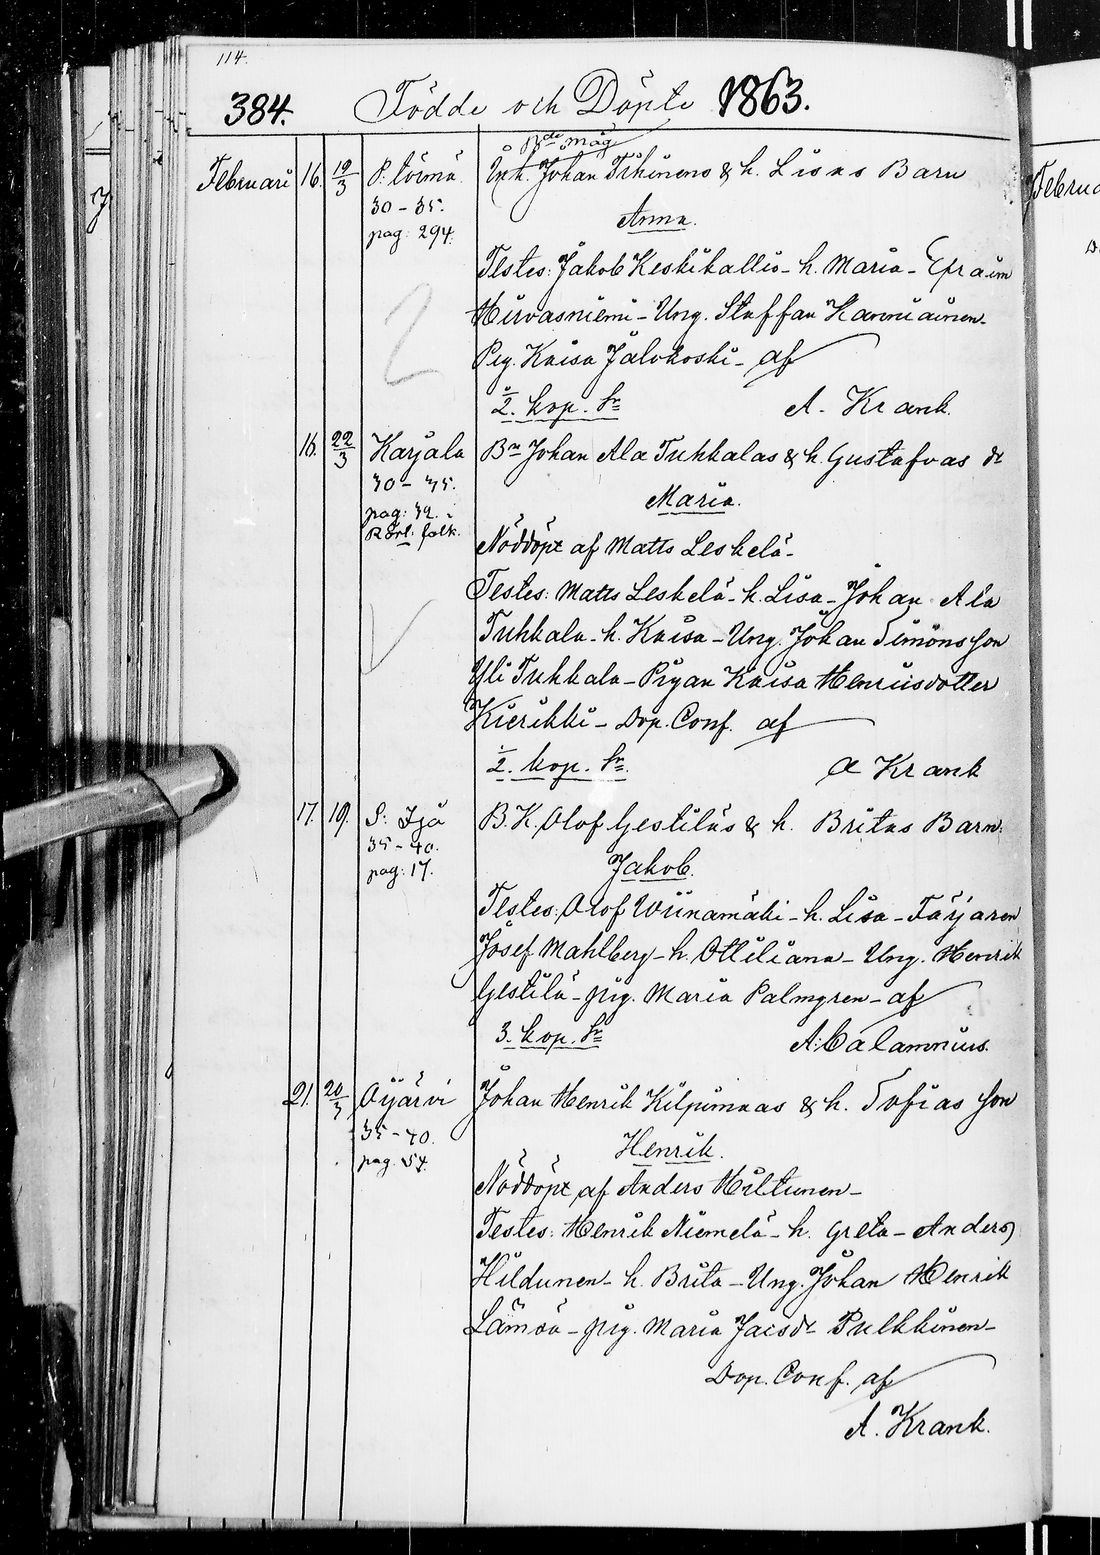 114.
384. Födde och Döpte 1863.
Bde Måg
Februari 16. 19/3 P. törmä Inh. Johan Tihinens & h. Lisas Barn
30-35.
pag: 294. Anna.
Testes: Jakob Keskikallio - h. Maria - Efraim
Hirvasniemi - Ung. Staffan Hanniainen -
Pig. Kaisa Jalokoski - af
2. kop. Sr A. Krank.
16. 22/3 Karjala Bn Johan Ala Tuhkalas & h. Gustafvas dr
30-35.
pag: 32. Maria.
Rörl: folk.
Nöddöpt af Matts Leskelä -
Testes: Matts Leskelä - h. Lisa - Johan Ala
Tuhkala - h. Kaisa - Ung. Johan Simonsson
Yli Tuhkala - Pigan Kaisa Henriksdotter
Kierikki - Dop. Conf. af
2. kop. Sr. A Krank
17. 19. S: Ijå B.K. Olof Gestiläs & h. Britas Barn.
35-40.
pag: 17. Jakob.
Testes: Olof Wiinamäki - h. Lisa - Färjaren
Josef Mahlberg - h. Ottiliana - Ung. Henrik
Gestilä - pig. Maria Palmgren - af
3. kop. Sr A: Calamnius.
21. 20/3 Oijärvi Johan Henrik Kilpimaas & h. Sofias son
35-40.
pag. 54. Henrik.
Nöddöpt af Anders Hiltunen -
Testes: Henrik Niemelä - h. Greta - Anders
Hildunen - h. Brita - Ung. Johan Henrik
Lämsä - pig. Maria Jacsdr Pulkkinen -
Dop. Conf. af
A. Krank.
Februa